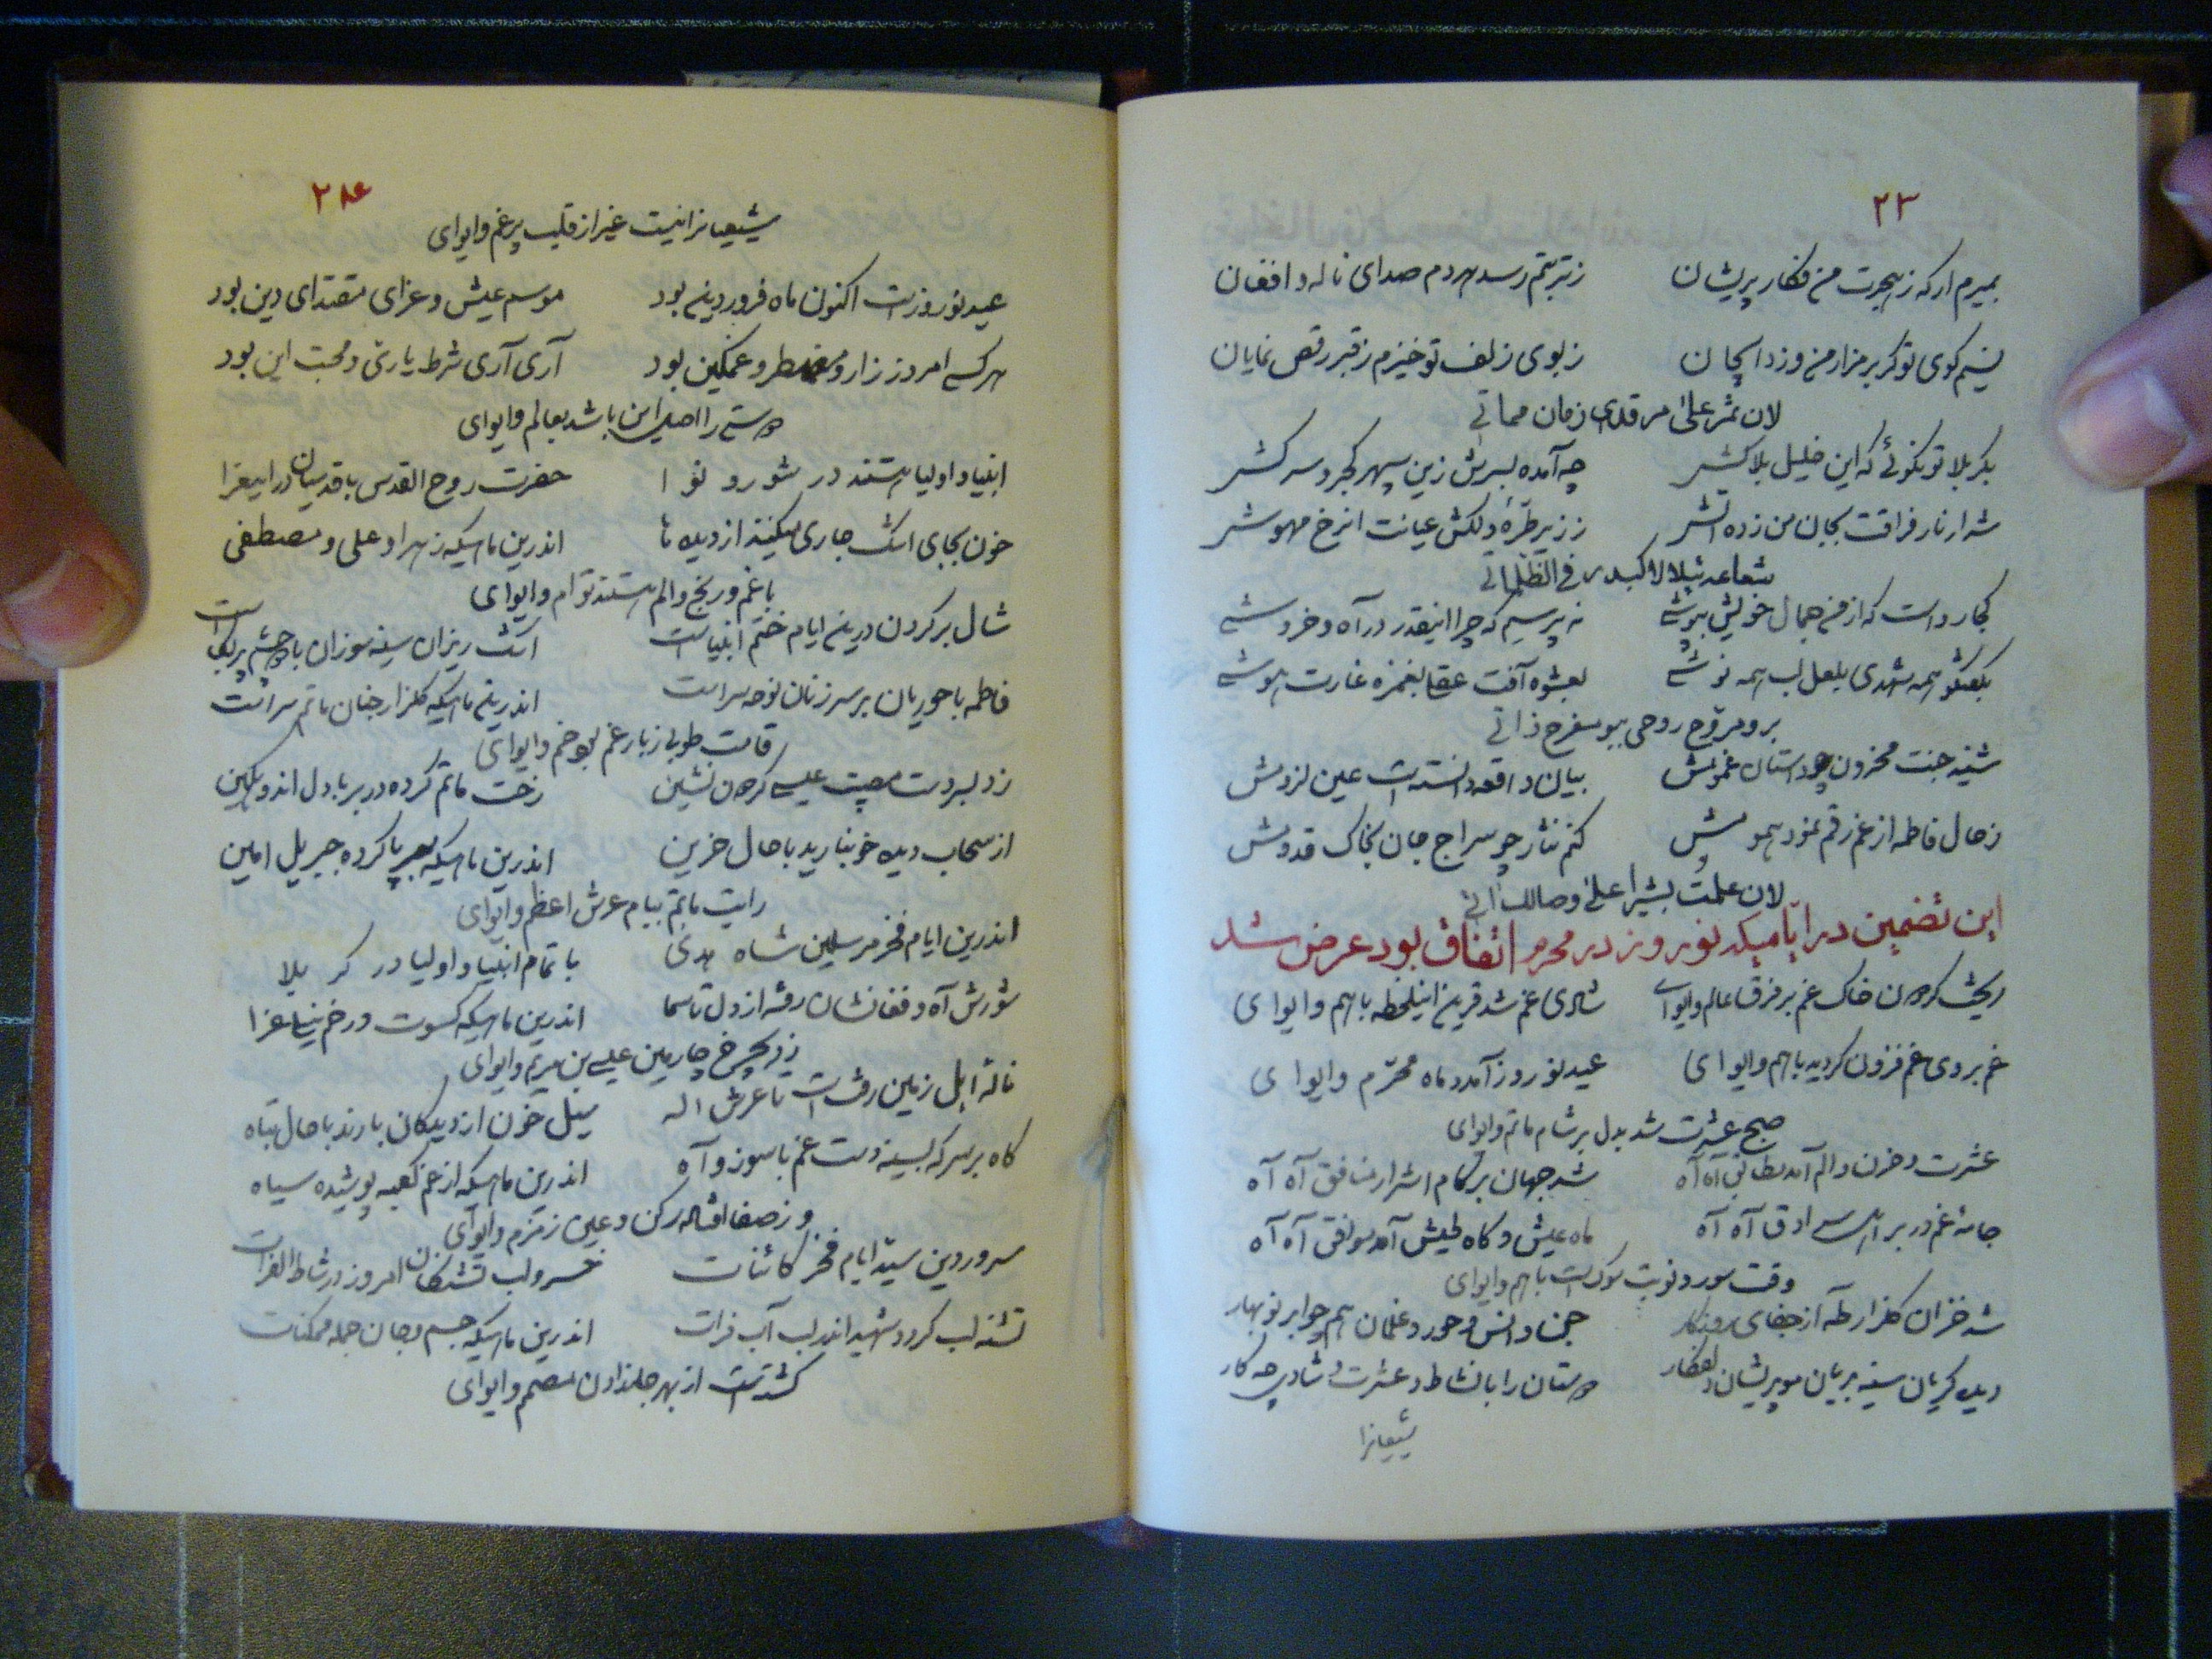 ۲۳
بمیرم ار که ز هجرت من فکار پریشان ز تربتم رسد هر دم صدای ناله و افغان
نسیم کوی تو گر بر مزار من وزد ایجان ز بوی زلف تو خیزم ز قبر رقص نمایان
لان تمر علی مرقدی زمان مماتی
بکربلا تو نگوئی که این خلیل بلاکش چه آمده بسرش زین سپهر کجرو سرکش
شرار نار فراقت بجان من زده آتش ز زیر طرهٔ دلکش عیانت از رخ مهوش
شعاعه یتلالا کبدر فی الظلماتی
کجا رواست که از من جمال خویش بپوشی نه پرسیم که چرا اینقدر در آه و خروشی
بگفتگو همه شهدی بلعل لب همه نوشی بعشوه آفت عقل بغمزه غارت هوشی
بروم روح روحی بیو مفرح ذاتی
شنید جنت محزون چو داستان غمویش بیان واقعه دانسته است عین لزومش
ز حال فاطمه از غم رقم نمود همومش کنم نثار چو سراج جان بخاک قدومش
لان علمت بشیرا علی وصالک اتی
این تضمین در ایامیکه نوروز در محرم اتفاق بود عرض شد
ریخت گردون خاک غم بر فرق عالم وایوای شادی غم شد قرین اینلحظه با هم وایوای
غم بروی غم فزون گردید با هم وایوای عید نوروز آمد و ماه محرم وایوای
صبح عشرت شد بدل بر شام ماتم وایوای
عشرت و حزن و الم آمد مطابق آه آه شد جهان بر کام اشرار منافق آه آه
جامهٔ غم در بر اهل سے اوق آه آه ماه عیش و گاه طیش آمد موافق آه آه
وقت سور و نوبت سوگ است با هم وایوای
شد خزان گلزار طه از جفای روزگار جن و انس و حور و غلمان هم چو ابر نوبهار
دیده گریان سینه بریان مو پریشان دلفکار دوستان را با نشاط و عشرت و شادی چه کار
شیعیانرا
۲۴
شیعیانرا نیست غیر از قلب پر غم وایوای
عید نوروزست اکنون ماه فروردین بود موسم عیش و عزای مقتدای دین بود
هر کسی امروز زار و مضطر و غمگین بود آری آری شرط یاری و محبت این بود
دوستی را اصل این باشد بعالم وایوای
انبیا و اولیا هستند در شور و نوا حضرت روح القدس با قدسیان در این عزا
خون بجای اشک جاری میکنند از دیده ها اندرین ماهیکه زهرا و علی و مصطفی
با غم و رنج و الم هستند توام وایوای
شال بر گردن درین ایام ختم انبیاست اشک ریزان سینه سوزان با دو چشم پر بکاست
فاطمه با حوریان بر سر زنان نوحه سراست اندرین ماهیکه گلزار جنان ماتم سراست
قامت طوبی ز بار غم بود خم وایوای
زد بسر دست مصیبت عیسی گردون نشین رخت ماتم کرده در بر با دل اندوهگین
از سحاب دیده خون بارید با حال حزین اندرین ماهیکه بر پا کرده جبریل امین
رایت ماتم ببام عرش اعظم وایوای
اندرین ایام فخر مرسلین شاه هدی با تمام انبیا و اولیا در کربلا
شورش آه و فغانشان رفته از دل تا سما اندرین ماهیکه کسوت در خم نیل عزا
زد بچرخ چارمین عیسی بن مریم وایوای
نالهٔ اهل زمین رفته است تا عرش اله سیل خون از دیدگان بارند با حال تباه
گاه بر سر گه بسینه دست غم با سوز و آه اندرین ماهیکه از غم کعبه پوشیده سیاه
وز صفا افتاده رکن و عین زمزم وایوای
سرور دین سید ایام فخر کائنات خسرو لب تشنگان امروز در شاط الفرات
تشنه لب گردد شهید اندر لب آب فرات اندرین ماهیکه جسم و جان جمله ممکنات
گشته است از بهر جاندادن مصمم وایوای